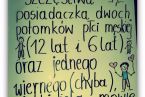 SZCZĘŚLIWA
posiadaczka dwóch
potomków płci męskiej
(12 lat i 6 lat)
oraz jednego
wiernego (chyba),